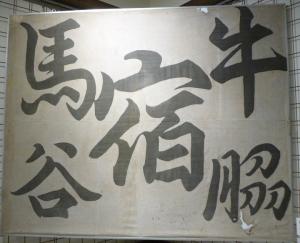 牛脇
宿
馬谷